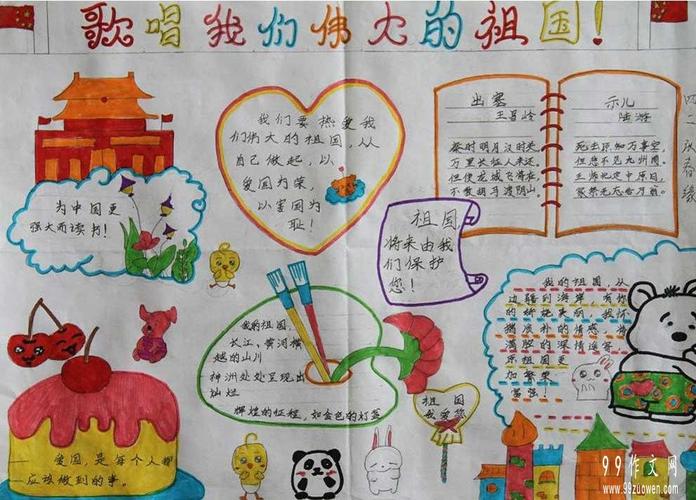 歌唱我们伟大的祖国!
为中国更
强大而读书!
我们要热爱我
们伟大的祖国,从
自己做起,以
爱国为荣,
以害国为
耻!
出塞
王昌龄
秦时明月汉时关
万里长征人未还。
但使龙城飞将在
不教胡马渡阴山。
示儿
陆游
死去原知万事空
但悲不见九州同。
王师北定中原日,
家祭无忘告乃翁。
四二
祖国
将来由我
们保护
您!
我的祖国,
长江、黄河横
越的山川
神洲处处呈现出
灿烂
辉煌的征程,如金色的灯盏
祖国
我爱您
我的祖国从
边疆到海岸有你
的绮艳美丽我怀
着质朴的情感
深情遥寄
祖国更
加繁荣
富强!
爱国,是每个人都
应该做到的事。
99作文网
www.99zuowen.com